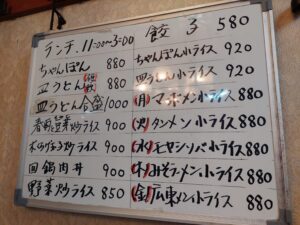 ランチ.11:00〜3:00
ちゃんぽん 880
皿うどん 880
皿うどん大盛 1000
ライス 900
木のり子炒ライス 900
回鍋肉丼 900
野菜炒ライス 850
餃子 580
ちゃんぽん小ライス 920
皿うどん小ライス 920
(月)マーボメン小ライス 880
(火)タンメン小ライス 880
(水)モヤシソバ小ライス 880
(木)みそラーメン小ライス 880
(金)広東メン小ライス 880